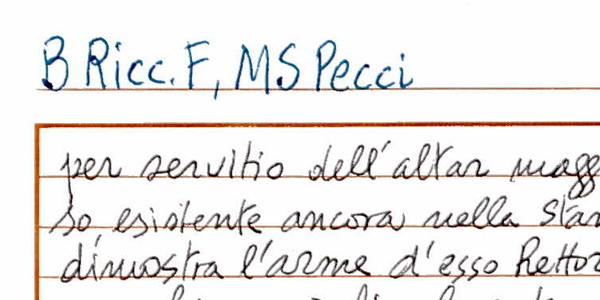 B Ricc. F, MS Pecci
per servitio dell'altar magg
so esistente ancora nella stan
dimostra l'arme d'esso Rettor